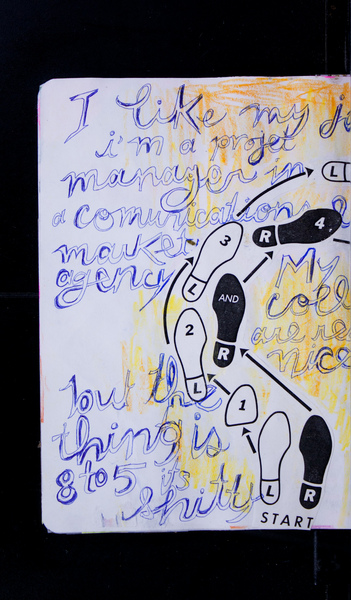 I like my
i'm a projet
manager in
a comunications &
market
agency
My
are
nice
but the
thing is
8 to 5 its
shitty
L
4
R
3
L
AND
R
2
L
1
L
R
START